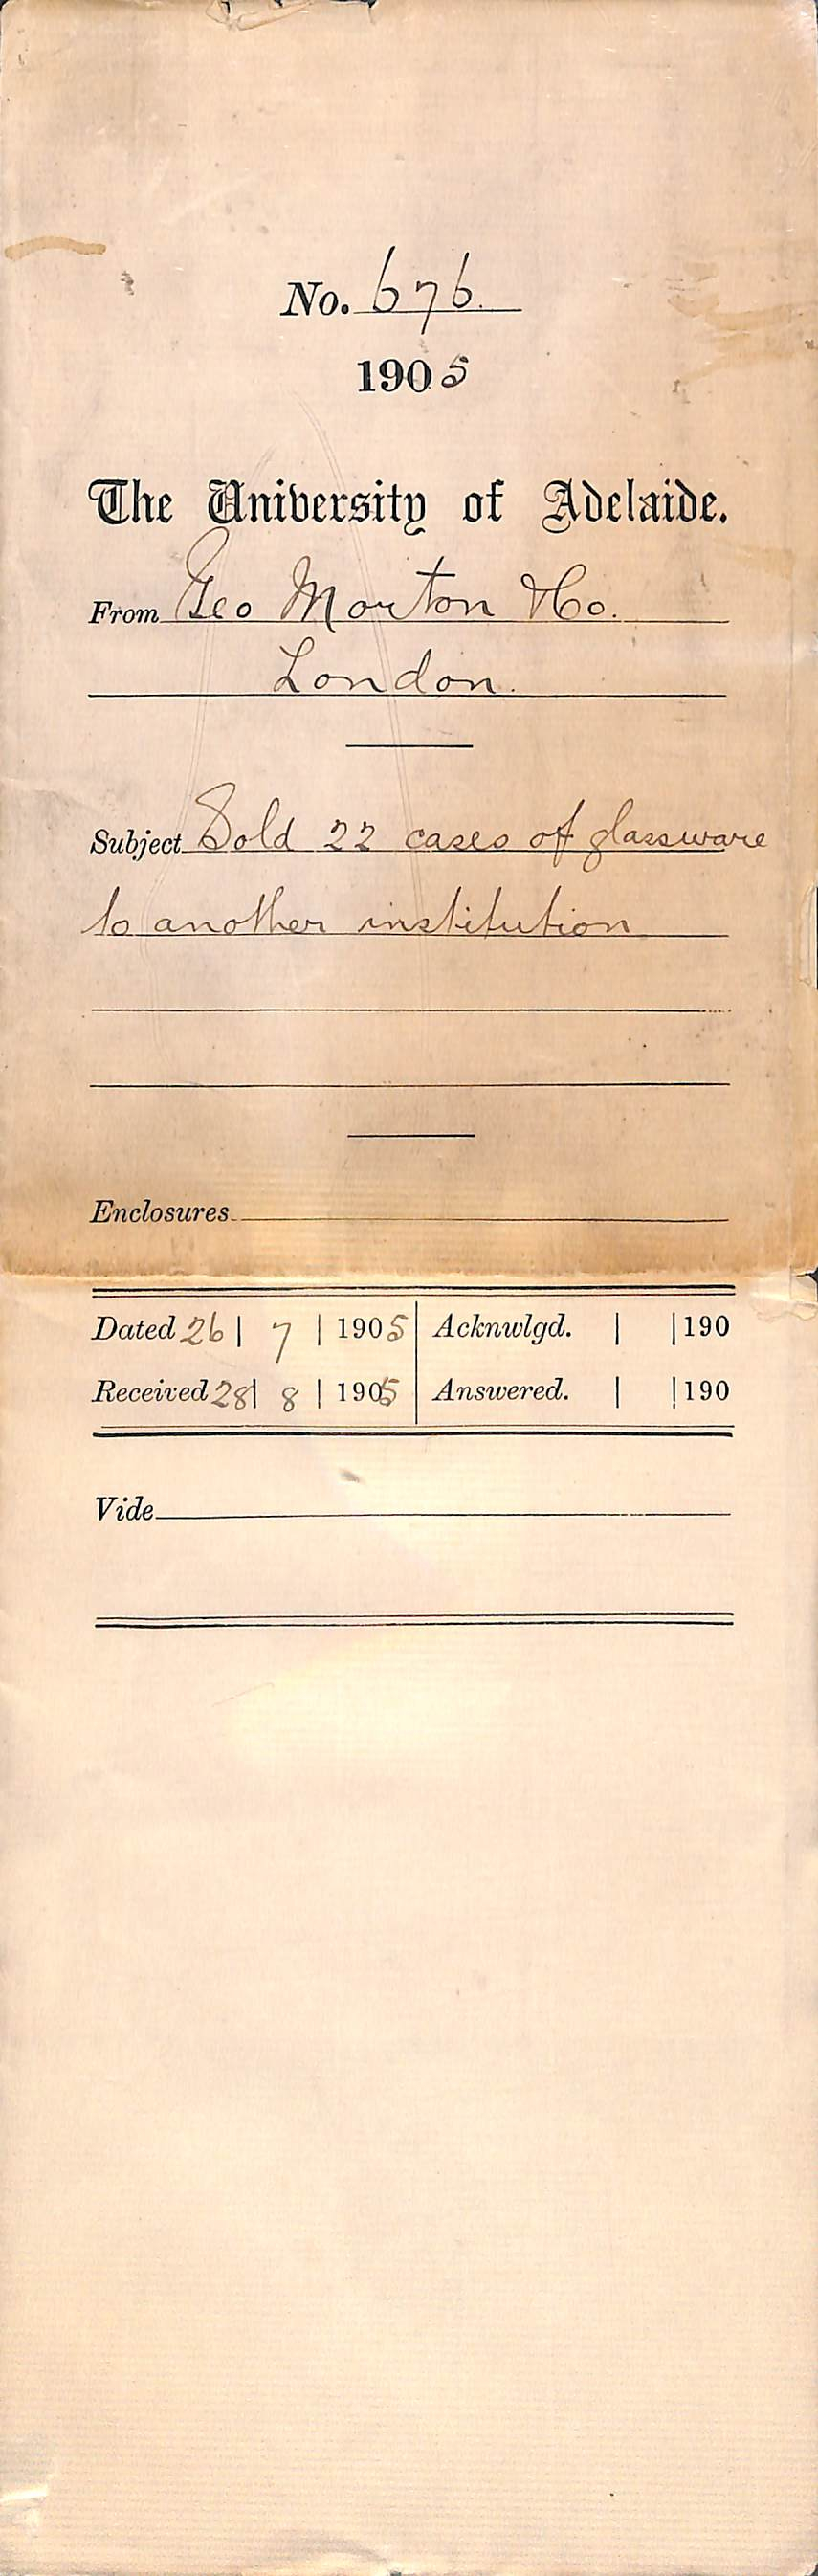 No. 676.
1905
The University of Adelaide.
From Geo Morton & Co.
London.
Subject Sold 22 cases of glassware
to another institution
Enclosures
Dated 26 | 7 | 1905 | Acknwlgd. | | 190
Received 28 | 8 | 1905 | Answered. | | 190
Vide